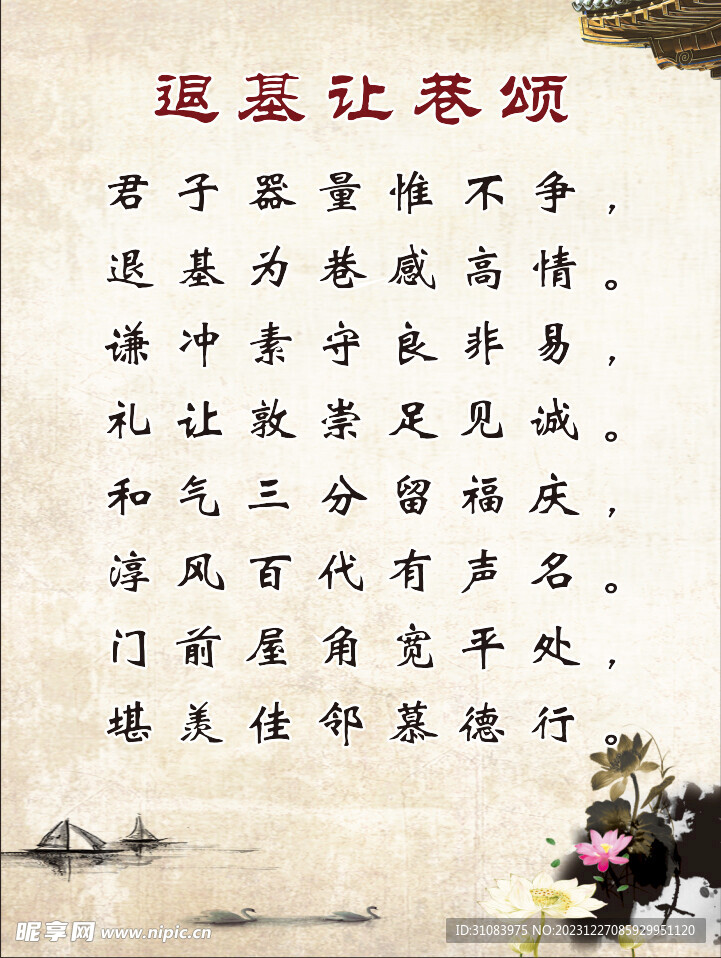 退基让巷颂
君子器量惟不争，
退基为巷感高情。
谦冲素守良非易，
礼让敦崇足见诚。
和气三分留福庆，
淳风百代有声名。
门前屋角宽平处，
堪羡佳邻慕德行。
昵享网 www.nipic.cn
ID:31083975 NO:20231227085929951120